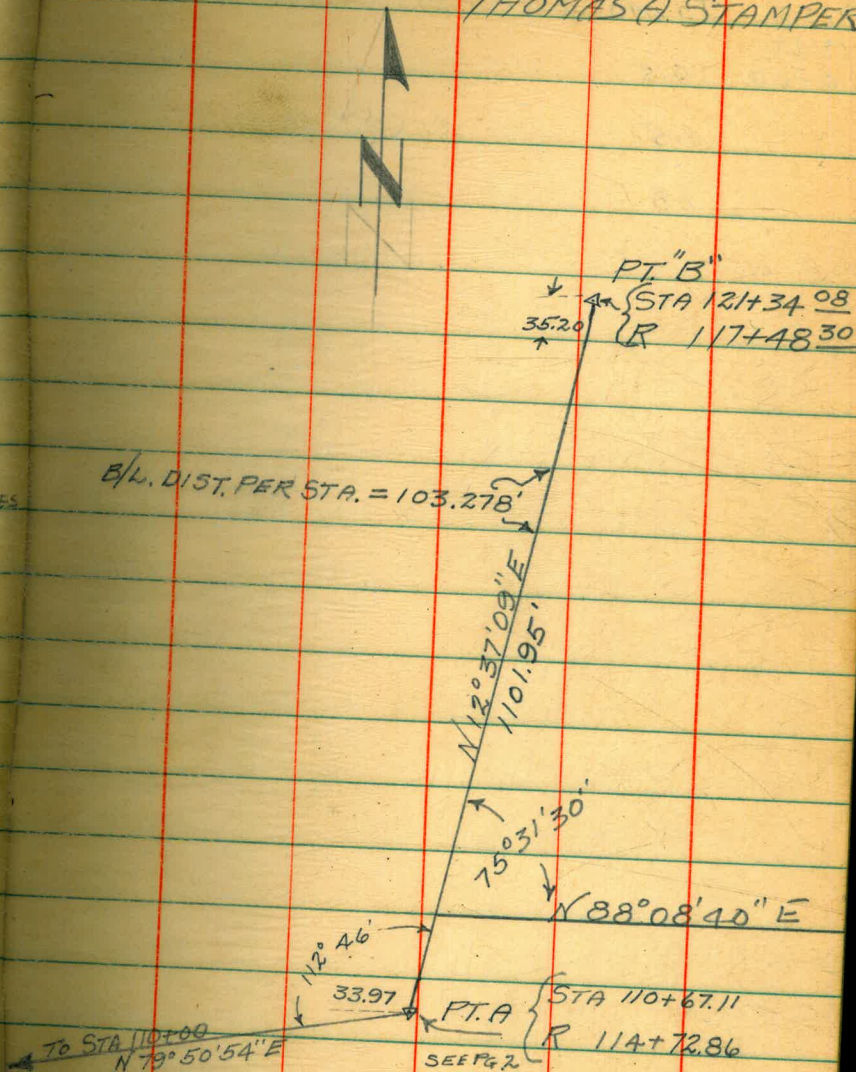 THOMAS A. STAMPER
N
PT. "B"
STA 121+34.08
R 117+48.30
35.20
B/L. DIST. PER STA. = 103.278'
N 12° 37' 09" E
1101.95'
75° 31' 30"
N 88° 08' 40" E
112° 46'
33.97
PT. A
STA 110+67.11
R 114+72.86
SEE PG. 2
TO STA 110+00
N 79° 50' 54" E